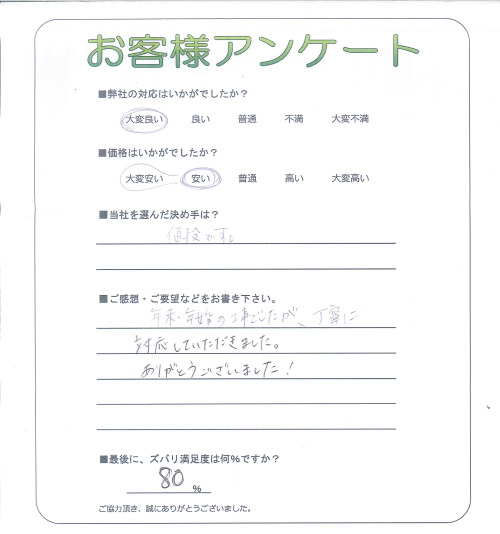 お客様アンケート
■弊社の対応はいかがでしたか？
大変良い 良い 普通 不満 大変不満
■価格はいかがでしたか？
大変安い 安い 普通 高い 大変高い
■当社を選んだ決め手は？
値段です。
■ご感想・ご要望などをお書き下さい。
年末・年始の工事でしたが、丁寧に
対応していただきました。
ありがとうございました！
■最後に、ズバリ満足度は何%ですか？
80 %
ご協力頂き、誠にありがとうございました。